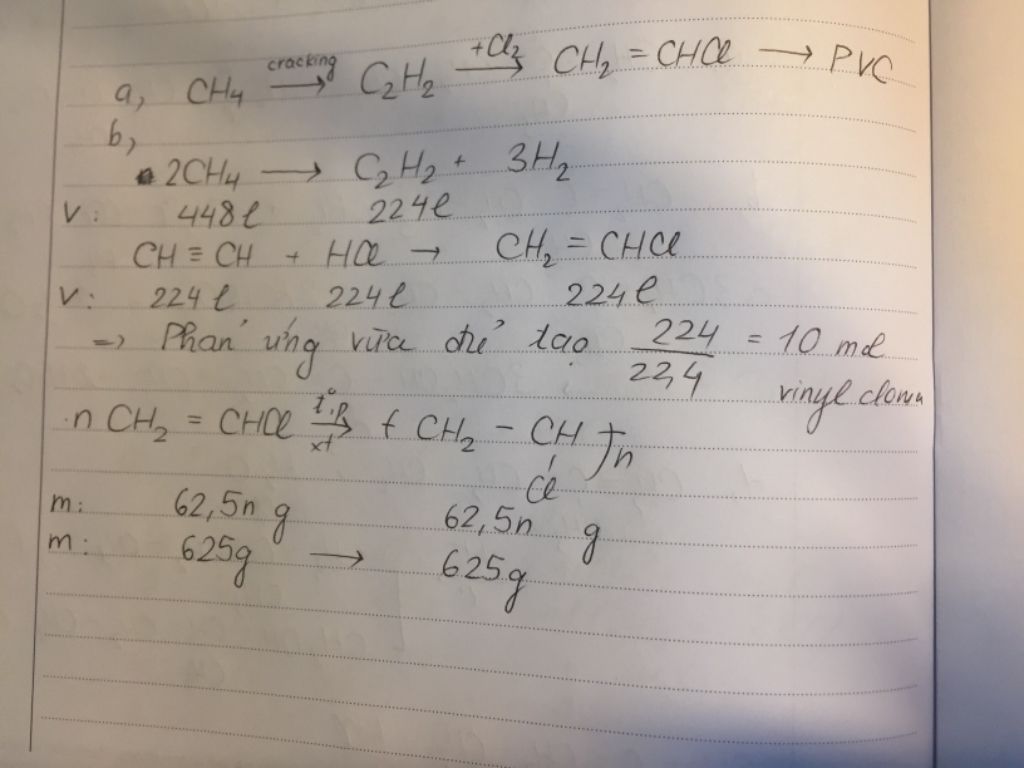 a, CH₄ —cracking→ C₂H₂ —+Cl₂→ CH₂ = CHCl → PVC
b,
2CH₄ → C₂H₂ + 3H₂
V: 448l 224l
CH ≡ CH + HCl → CH₂ = CHCl
V: 224l 224l 224l
=> Phản ứng vừa đủ tạo 224/22,4 = 10 mol
vinyl clorua
n CH₂ = CHCl —t°, p, xt→ ( CH₂ - CH )n
Cl
m: 62,5n g 62,5n g
m: 625g → 625g